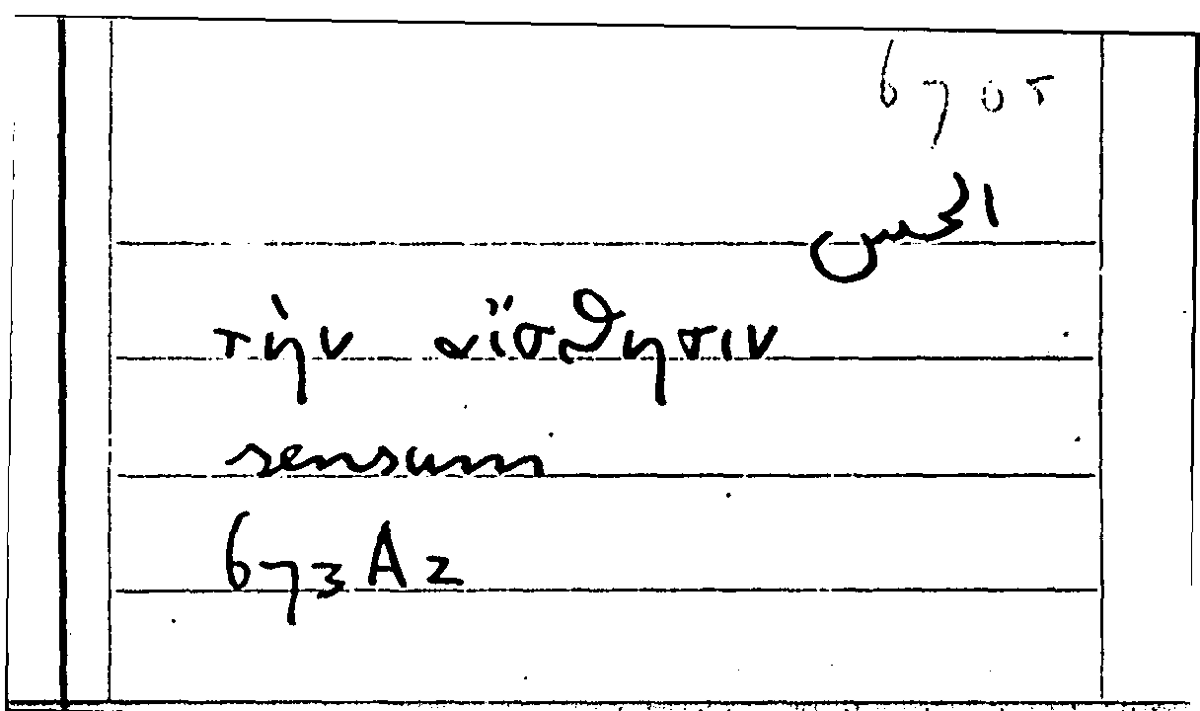 6705
الحس
τὴν αἴσθησιν
sensum
673A2